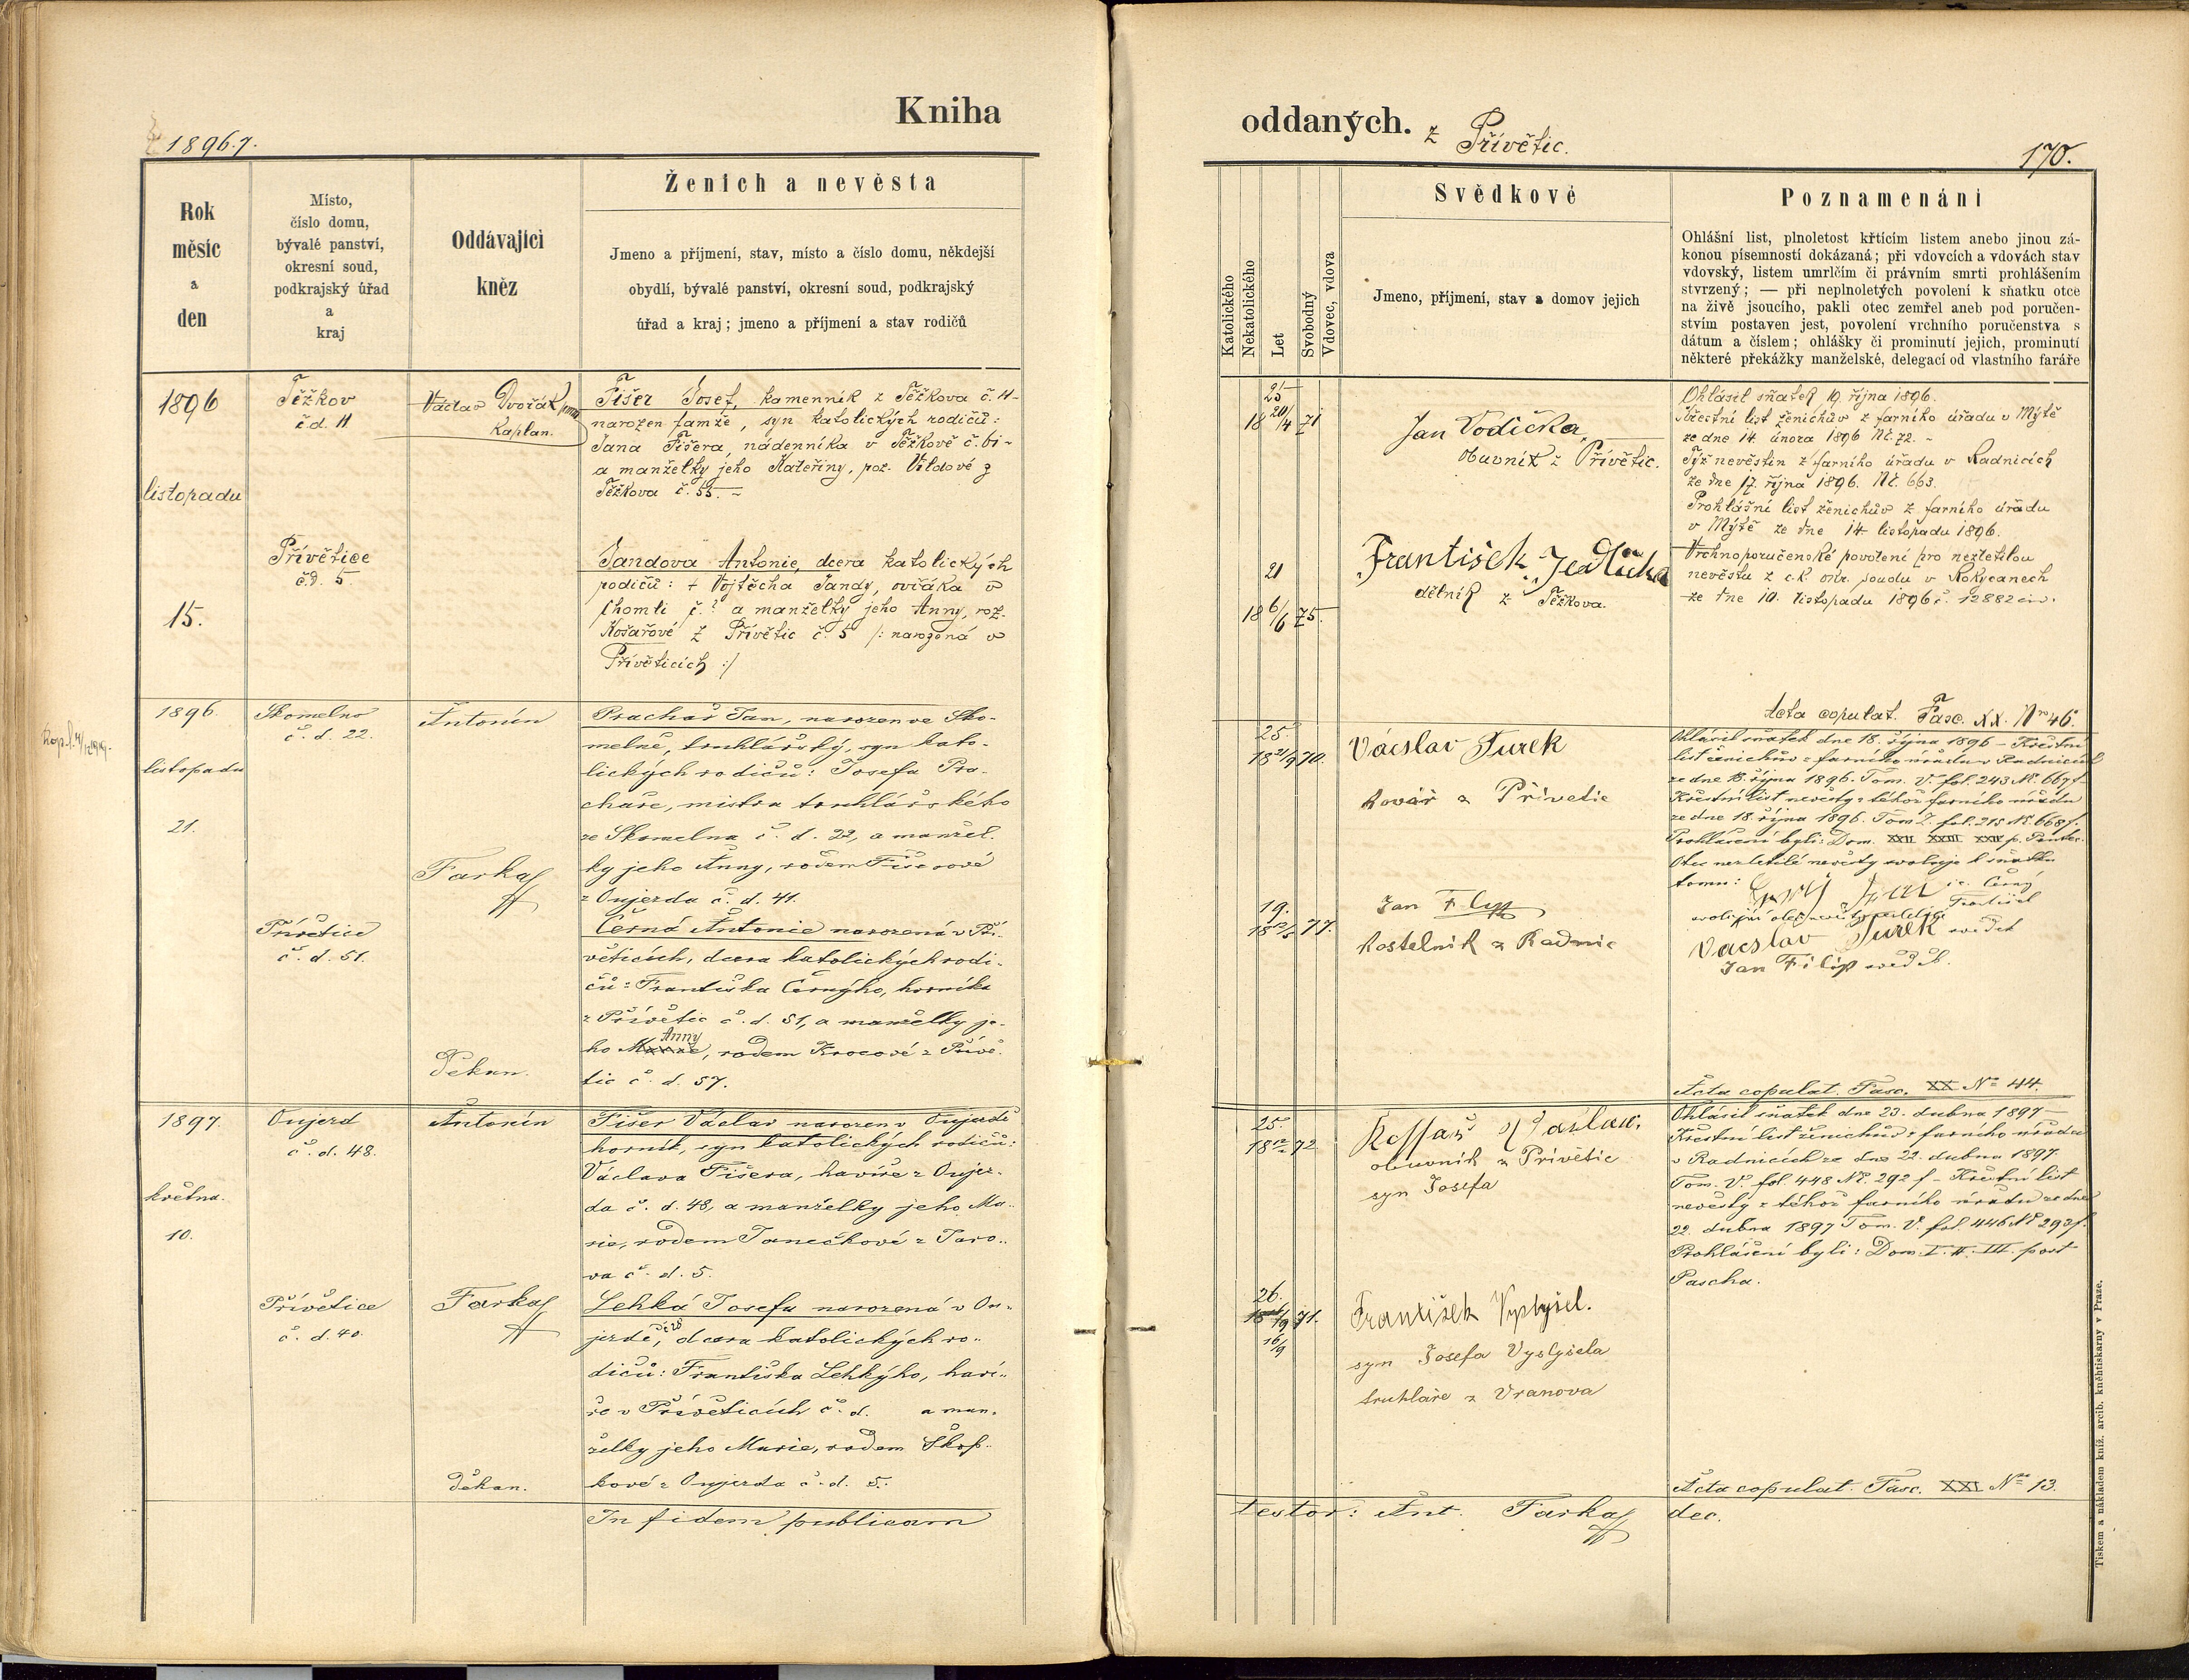 Kniha
1896.7.
Rok
měsíc
a
den
Místo,
číslo domu,
bývalé panství,
okresní soud,
podkrajský úřad
a
kraj
Oddávající
kněz
Ženich a nevěsta
Jmeno a příjmení, stav, místo a číslo domu, někdejší
obydlí, bývalé panství, okresní soud, podkrajský
úřad a kraj; jmeno a příjmení a stav rodičů
1896
listopadu
15.
Těžkov
č.d. 11
Přívětice
č.d. 5.
Václav Dvořák
kaplan.
Fišer Josef, kamenník z Těžkova č. 11-
narozen tamže, syn katolických rodičů:
Jana Fišera, nádenníka v Těžkově č. 61-
a manželky jeho Kateřiny, roz. Vildové z
Těžkova č. 55. -
Jandova Antonie, dcera katolických
rodičů: + Vojtěcha Jandy, ovčáka v
Chomli č. ? a manželky jeho Anny, roz.
Košařové z Přívětic č. 5 /: narozená v
Příveticích :/
1896.
listopadu
21.
Skomelno
č. d. 22.
Přívětice
č. d. 51.
Antonín
Farkaš
Děkan.
Prachař Jan, narozen ve Sko-
melně, truhlářský, syn kato-
lických rodičů: Josefa Pra-
chaře, mistra truhlářského
ze Skomelna č. d. 22, a manžel.
ky jeho Anny, rodem Fišerové
z Oujezda č. d. 41.
Černá Antonie narozená v Pří-
věticích, dcera katolických rodi-
čů: Františka Černýho, horníka
z Přívětic č. d. 51, a manželky je-
ho Anny, rodem Krocové z Přívě-
tic č. d. 57.
1897.
května.
10.
Oujezd
č. d. 48.
Přívětice
č. d. 40.
Antonín
Farkaš
Děkan.
Fišer Václav narozen v Oujezdě
horník, syn katolických rodičů:
Václava Fišera, havíře z Oujez-
da č. d. 48, a manželky jeho Ma-
rie, rodem Janečkové z Jaro-
va č. d. 5.
Lehká Josefa narozená v Ou-
jezdě, dcera katolických ro-
dičů: Františka Lehkýho, haví-
ře v Příveticích č. d. a man-
želky jeho Marie, rodem Skop-
kové z Oujezda č. d. 5.
In fidem publicam
oddaných. z Přívětic.
170.
Katolického
Nekatolického
Let
Svobodný
Vdovec, vdova
Svědkové
Jmeno, příjmení, stav a domov jejich
Poznamenání
Ohlášní list, plnoletost křtícím listem anebo jinou zá-
konou písemností dokázaná; při vdovcích a vdovách stav
vdovský, listem umrlčím či právním smrti prohlášením
stvrzený; — při neplnoletých povolení k sňatku otce
na živě jsoucího, pakli otec zemřel aneb pod poručen-
stvím postaven jest, povolení vrchního poručenstva s
dátum a číslem; ohlášky či prominutí jejich, prominutí
některé překážky manželské, delegací od vlastního faráře
25
18 20/4 71
21
18 6/6 75.
Jan Vodička
obuvník z Přívětic.
František Jedlička
dělník z Těžkova.
Ohlásil sňatek 19. října 1896.
Křestní list ženichův z farního úřadu v Mýtě
ze dne 14. února 1896 Nč. 72. -
Týž nevěstin z farního úřadu v Radnicích
ze dne 17. října 1896. Nč. 663.
Prohlášní list ženichův z farního úřadu
v Mýtě ze dne 14. listopadu 1896.
Vrchnoporučenské povolení pro nezletilou
nevěstu z c.k. okr. soudu v Rokycanech
ze dne 10. listopadu 1896 č. 12882 civ.
Acta copulat. Fasc. XX. Nro 46.
25.
18 21/9 70.
19.
77.
Vácslav Turek
kovář z Přívětic
Jan Filip
kostelník z Radnic
Ohlásil sňatek dne 18. října 1896 - Křestní
list ženichův z farního úřadu v Radnicích
ze dne 18. října 1896. Tom. V. fol. 243 Nč. 667 f.
Křestní list nevěsty z téhož farního úřadu
ze dne 18. října 1896. Tom I. fol. 215 Nč. 668 f.
Prohlášeni byli: Dom. XXII XXIII XXIV p. Pentec.
Otec nezletilé nevěsty svoluje k sňatku
tomu:
Vácslav Turek svědek
Jan Filip svědek.
Acta copulat. Fasc. XX No 44.
25.
18 72
26.
71.
16/9
obuvník z Přívětic
syn Josefa
František Vyslyšel.
syn Josefa Vyslyšela
truhláře z Vranova
Ohlásil sňatek dne 23. dubna 1897 -
Křestní list ženichův z farního úřadu
v Radnicích ze dne 22. dubna 1897.
Tom. V. fol 448 Nč. 292 f - Křestní list
nevěsty z téhož farního úřadu ze dne
22. dubna 1897 Tom. V. fol. 446 Nč 293 f.
Prohlášeni byli: Dom. I. II. III. post
Pascha.
Acta copulat. Fasc. XXI Nro 13.
testor: Ant. Farkaš dec.
Tiskem a nákladem kníž. arcib. kněhtiskarny v Praze.